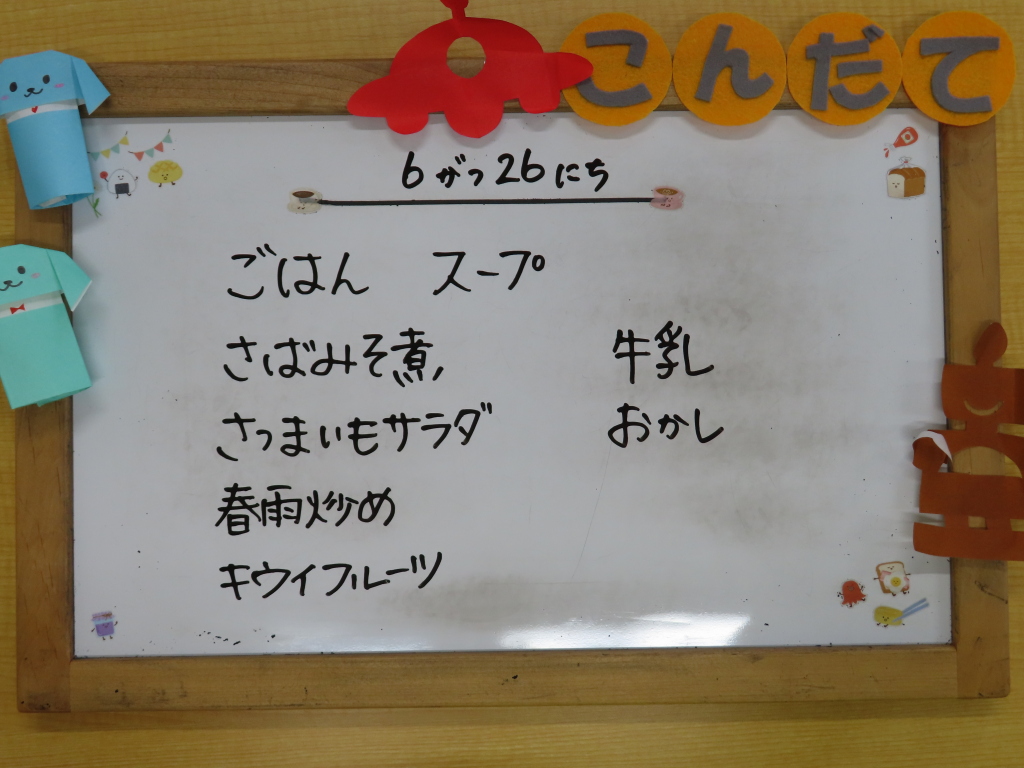 こんだて
6がつ26にち
ごはん スープ
さばみそ煮
さつまいもサラダ
春雨炒め
キウイフルーツ
牛乳
おかし